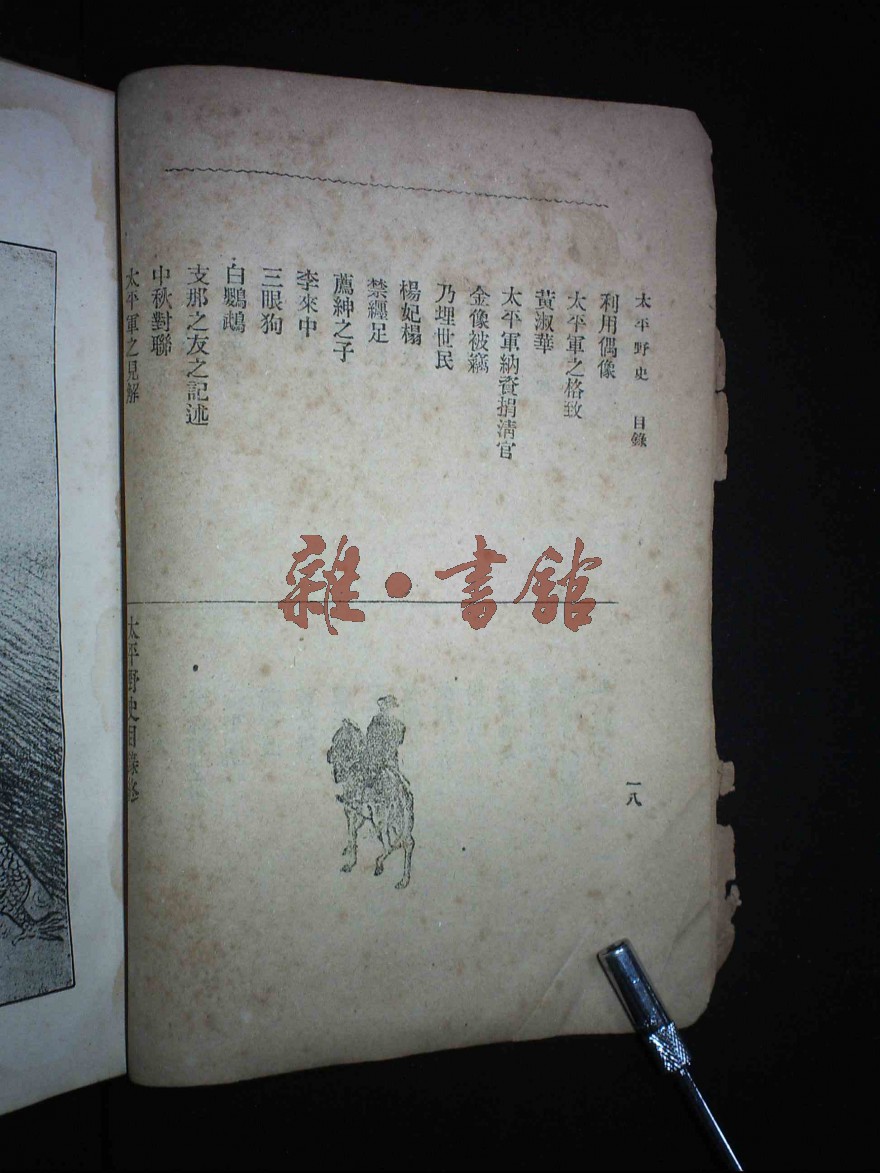 太平野史 目錄
利用偶像
太平軍之格致
黃淑華
太平軍納資捐清官
金像被竊
乃埋世民
楊妃榻
禁纏足
薦紳之子
李來中
三眼狗
白鸚鵡
支那之友之記述
中秋對聯
太平軍之見解
太平野史目錄終
一八
雜·書館